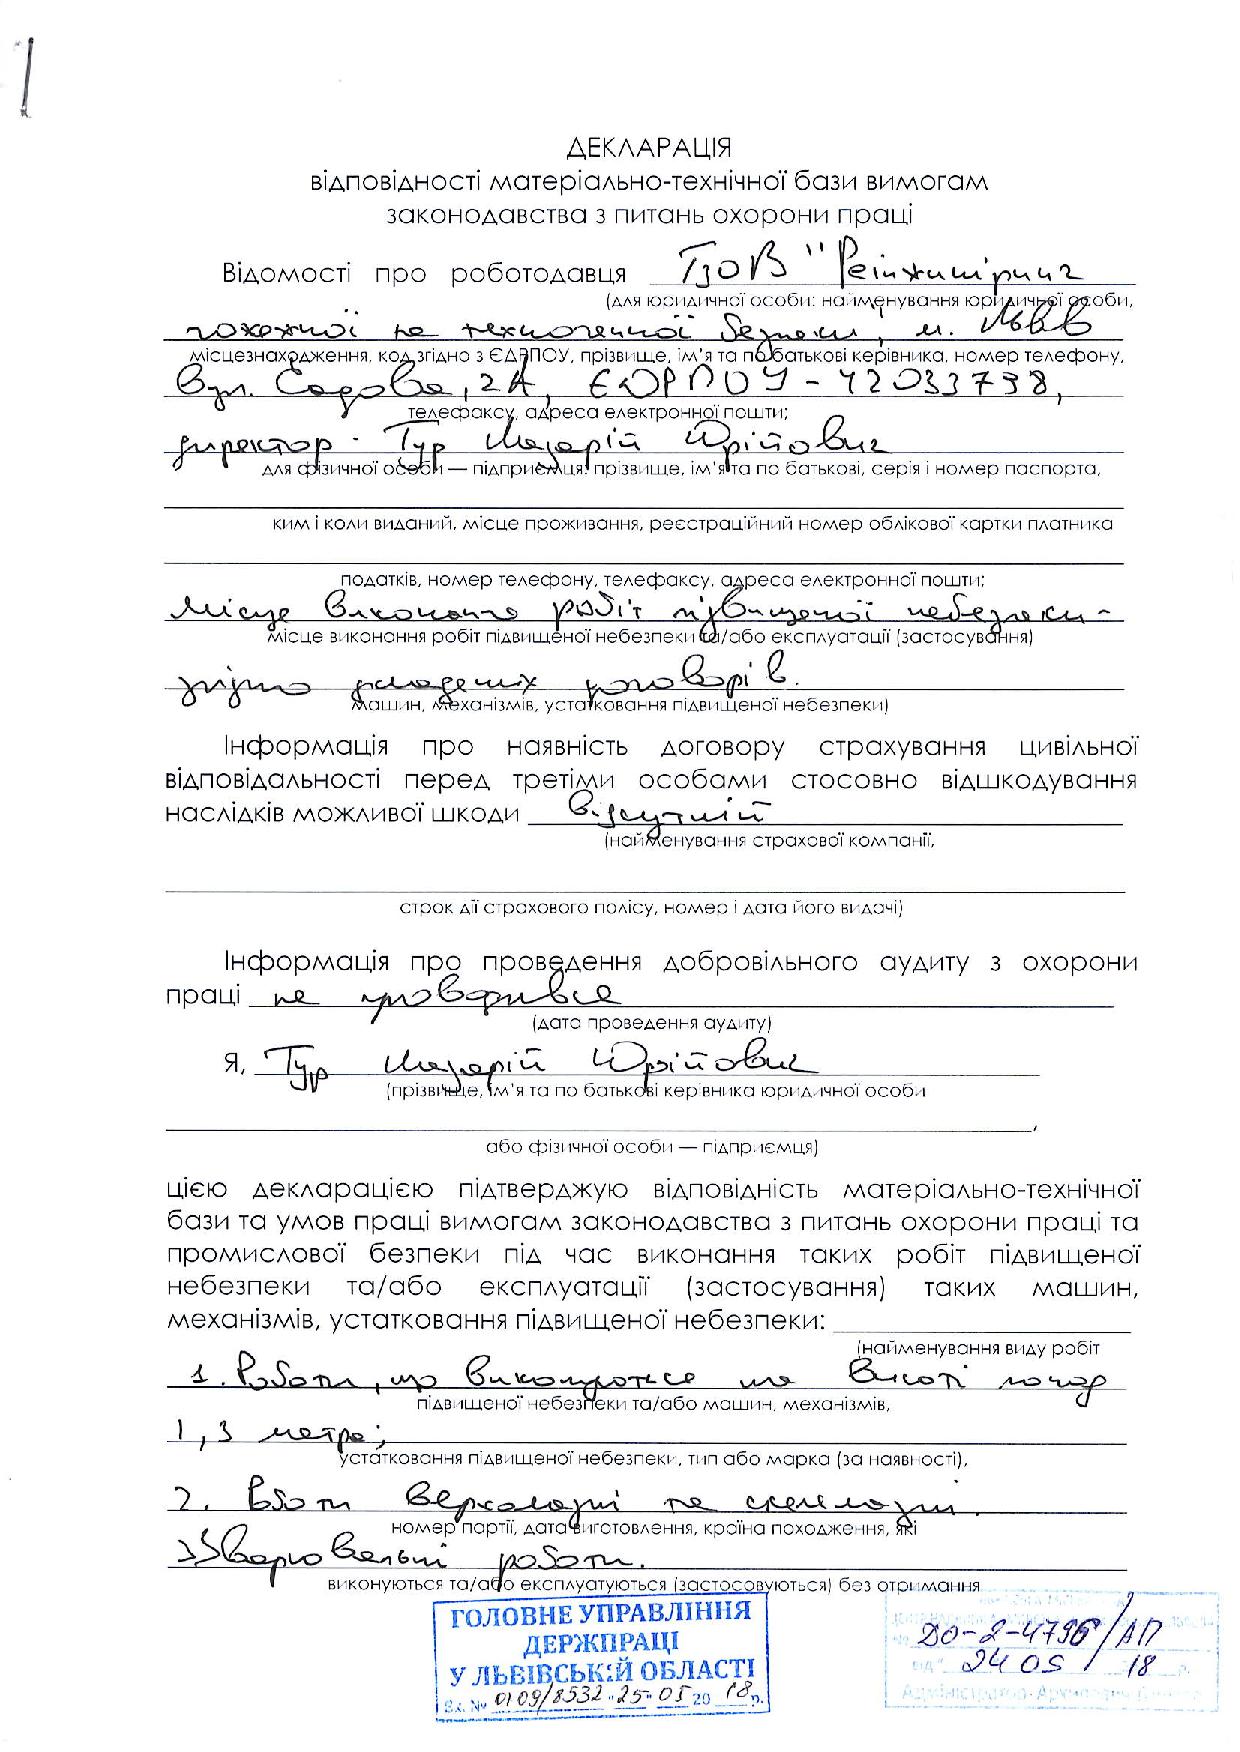 ДЕКЛАРАЦІЯ
відповідності матеріально-технічної бази вимогам
законодавства з питань охорони праці
Відомості про роботодавця ТзОВ "Реінжиніринг
(для юридичної особи: найменування юридичної особи,
пожежної та техногенної безпеки", м. Львів
місцезнаходження, код згідно з ЄДРПОУ, прізвище, ім'я та по батькові керівника, номер телефону,
вул. Садова, 2А, ЄДРПОУ - 42033738,
телефаксу, адреса електронної пошти;
директор - Тур Юрійович
для фізичної особи — підприємця: прізвище, ім'я та по батькові, серія і номер паспорта,
ким і коли виданий, місце проживання, реєстраційний номер облікової картки платника
податків, номер телефону, телефаксу, адреса електронної пошти;
місце виконання робіт підвищеної небезпеки -
місце виконання робіт підвищеної небезпеки та/або експлуатації (застосування)
згідно укладених договорів.
машин, механізмів, устатковання підвищеної небезпеки)
Інформація про наявність договору страхування цивільної
відповідальності перед третіми особами стосовно відшкодування
наслідків можливої шкоди Відсутній
(найменування страхової компанії,
строк дії страхового полісу, номер і дата його видачі)
Інформація про проведення добровільного аудиту з охорони
праці не проводився
(дата проведення аудиту)
Я, Тур Юрійович
(прізвище, ім'я та по батькові керівника юридичної особи
або фізичної особи — підприємця)
цією декларацією підтверджую відповідність матеріально-технічної
бази та умов праці вимогам законодавства з питань охорони праці та
промислової безпеки під час виконання таких робіт підвищеної
небезпеки та/або експлуатації (застосування) таких машин,
механізмів, устатковання підвищеної небезпеки:
(найменування виду робіт
1. Роботи, що виконуються на висоті понад
підвищеної небезпеки та/або машин, механізмів,
1,3 метра;
устатковання підвищеної небезпеки, тип або марка (за наявності),
2. Роботи верхолазні та скелелазні
номер партії, дата виготовлення, країна походження, які
3) Зварювальні роботи.
виконуються та/або експлуатуються (застосовуються) без отримання
ГОЛОВНЕ УПРАВЛІННЯ
ДЕРЖПРАЦІ
У ЛЬВІВСЬКІЙ ОБЛАСТІ
Вх. № 0109/8532 "25" 05 2018р.
ДО-2-4796/АП
від 24 05 18 р.